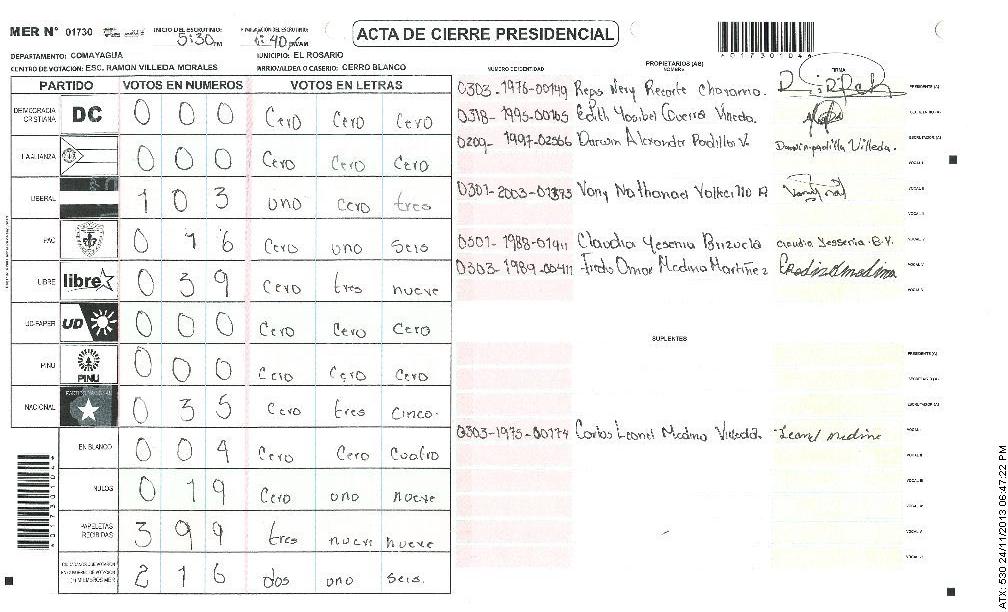 MER N° 01730
INICIO DEL ESCRUTINIO: 5:30 PM
ACTA DE CIERRE PRESIDENCIAL
DEPARTAMENTO: COMAYAGUA
MUNICIPIO: EL ROSARIO
CENTRO DE VOTACION: ESC. RAMON VILLEDA MORALES
BARRIO/ALDEA O CASERIO: CERRO BLANCO
PARTIDO VOTOS EN NUMEROS VOTOS EN LETRAS
DEMOCRACIA CRISTIANA DC 0 0 0 Cero Cero Cero
LA ALIANZA 0 0 0 Cero Cero Cero
LIBERAL 1 0 3 uno cero tres
PAC 0 1 6 Cero uno seis
LIBRE libre 0 3 9 Cero tres nueve
UD-FAPER UD 0 0 0 Cero Cero Cero
PINU PINU 0 0 0 Cero Cero Cero
NACIONAL 0 3 5 Cero tres cinco.
EN BLANCO 0 0 4 Cero Cero Cuatro
NULOS 0 1 9 Cero uno nueve
PAPELETAS RECIBIDAS 3 9 9 tres nueve nueve
2 1 6 dos uno seis.
PROPIETARIOS (AS)
NUMERO DE IDENTIDAD NOMBRE FIRMA
0303-1976-00149 PRESIDENTE (A)
0318-1995-00165
0209-1997-02566 Darwin Alexander Padilla V. Darwin padilla Villeda.
ESCRUTADOR (A)
VOCAL I
VOCAL II
0501-1988-01911 Claudia Yesenia Brizuela Claudia Yessenia B.V.
0303-1989-00411 Omar Medina Martinez
SUPLENTES
PRESIDENTE (A)
SECRETARIO (A)
ESCRUTADOR (A)
0303-1975-00174 Carlos Leonel Medina Villeda. Leonel medina
VOCAL I
VOCAL II
VOCAL III
VOCAL IV
VOCAL V
4017301044
ATX: 530 24/11/2013 06:47:22 PM